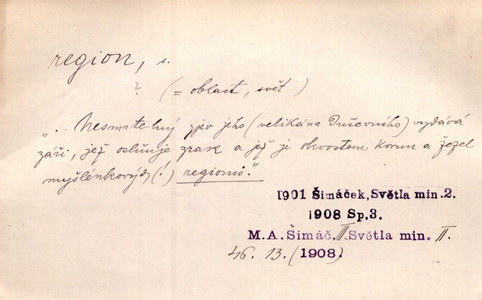 region, s.
? (= oblast, svět)
„.. Nesmrtelný zjev jeho (velikána Duševního) vydává
záři, jež oslňuje zrak a jež je skvostem korun a žezel
myšlénkových (.) regionů."
1901 Šimáček, Světla min. 2.
1908 Sp, 3.
M. A. Šimáč. II Světla min. II.
46. 13. (1908)